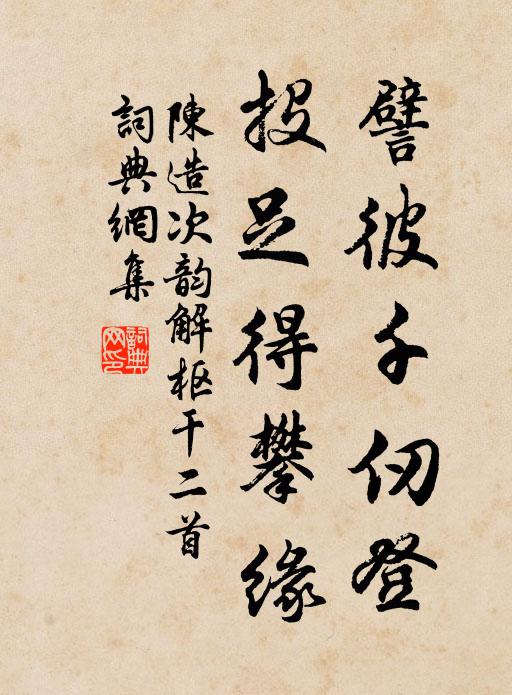 譬彼千仞登
投足得攀緣
陳造次韵解枢干二首
詞典網集
詞典網印